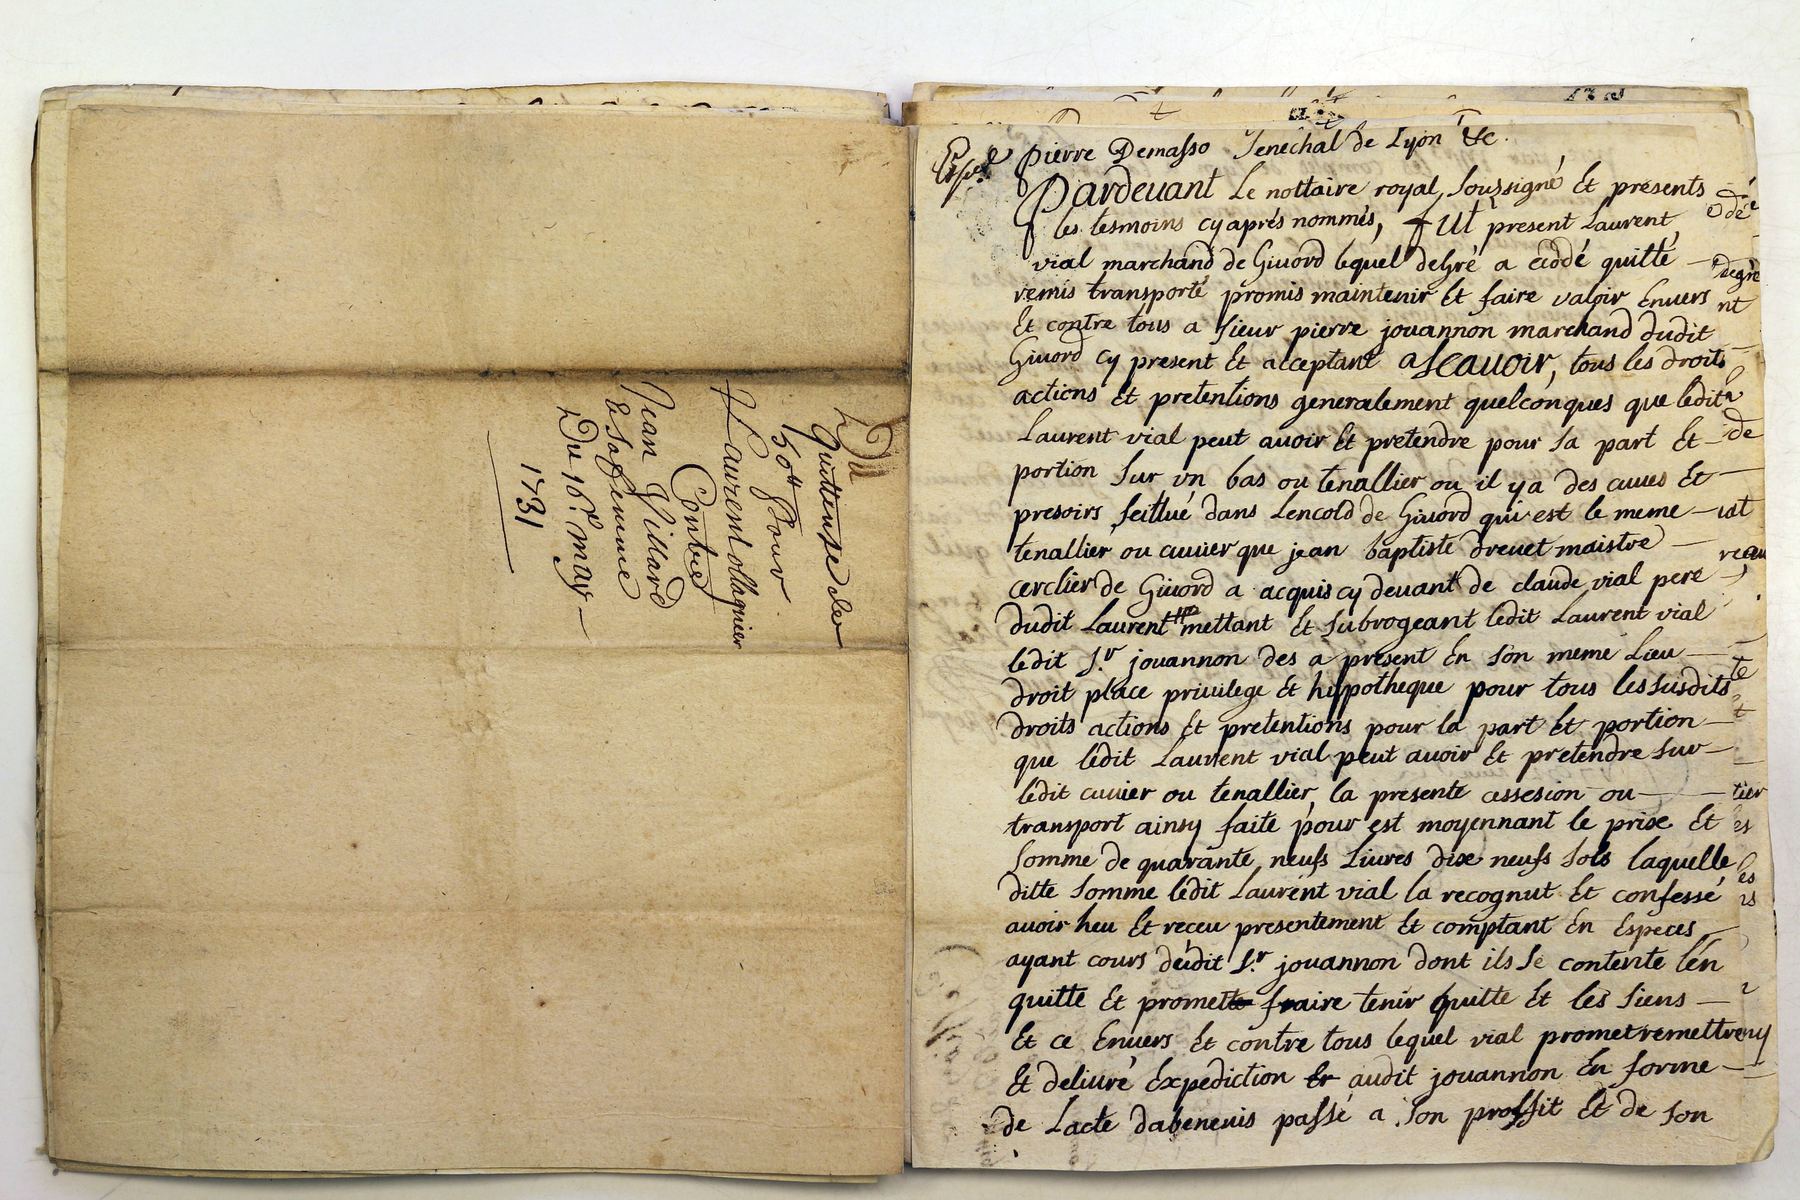 Du
quittense de
50ᵗᵗ pour
Laurent ollagnier
Contre
Jean Villard
& sa femme
Du 16ᵉ may
1731
Pierre Demasso Senechal de Lyon &c.
Pardeuant Le nottaire royal soussigné Et présents
les tesmoins cy aprés nommés, fut present Laurent
vial marchand de Giuord lequel degré a ceddé quitté
remis transporté promis maintenir Et faire valoir Enuers
Et contre tous a sieur pierre jouannon marchand dudit
Giuord cy present Et acceptant ascauoir, tous les droits
actions Et pretentions generalement quelconques que ledit
Laurent vial peut auoir Et pretendre pour sa part Et
portion sur vn bas ou tenallier ou il y a des cuues Et
presoirs seittué dans Lencold de Giuord qui est le meme
tenallier ou cuuier que jean baptiste dreuet maistre
cerclier de Giuord a acquis cy deuant de claude vial pere
dudit Laurent mettant Et subrogeant ledit Laurent vial
ledit S.r jouannon des a present En son meme Lieu
droit place priuilege Et hypotheque pour tous les susdits
droits actions Et pretentions pour la part Et portion
que ledit Laurent vial peut auoir Et pretendre sur
ledit cuuier ou tenallier, la presente cessesion ou
transport ainsy faite pour est moyennant le prixe Et
somme de quarante neufs Liures dix neufs sols laquelle
ditte somme ledit Laurent vial la recognut Et confessé
auoir heu Et receu presentement Et comptant En Especes
ayant cours dudit S.r jouannon dont ils se contente l'en
quitte Et promet faire tenir quitte Et les siens
Et ce Enuers Et contre tous lequel vial promet remettre
Et deliuré Expediction audit jouannon En forme
de Lacte dabeneuis passé a son proffit Et de son